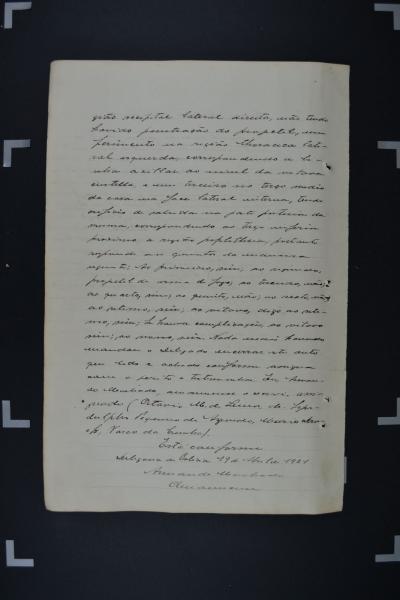 gião occipital lateral direita, não tendo
havido penetração do projectil, um
ferimento na região thoracica late-
ral esquerda, correspondendo a li-
nha axillar ao nivel da oitava
costella, e um terceiro no terço medio
da coxa na face lateral interna, tendo
orificio de sahida na parte posterior da
mesma, correspondendo ao terço inferior
proximo a região poplithea, portanto
responde aos quesitos da maneira
seguinte: Ao primeiro, sim; ao segundo,
projectil de arma de fogo; ao terceiro, não;
ao quarto, sim; ao quinto, não; ao sexto, não;
ao setimo, sim; ao oitavo, digo ao seti-
mo, sim, se houver complicação; ao oitavo
sim; ao nono, sim. Nada mais havendo
mandou o Delegado encerrar este auto
que lido e achado conforme assigna
com o perito e testemunhas. Eu, Arman-
do Machado, amanuense o escrevi. (assi-
gnado) Octavio M. de
de Azevedo, Mario
Vasco da Cunha).
Está conforme
Delegacia de Policia 19 de 1921
Armando Machado
Amanuense